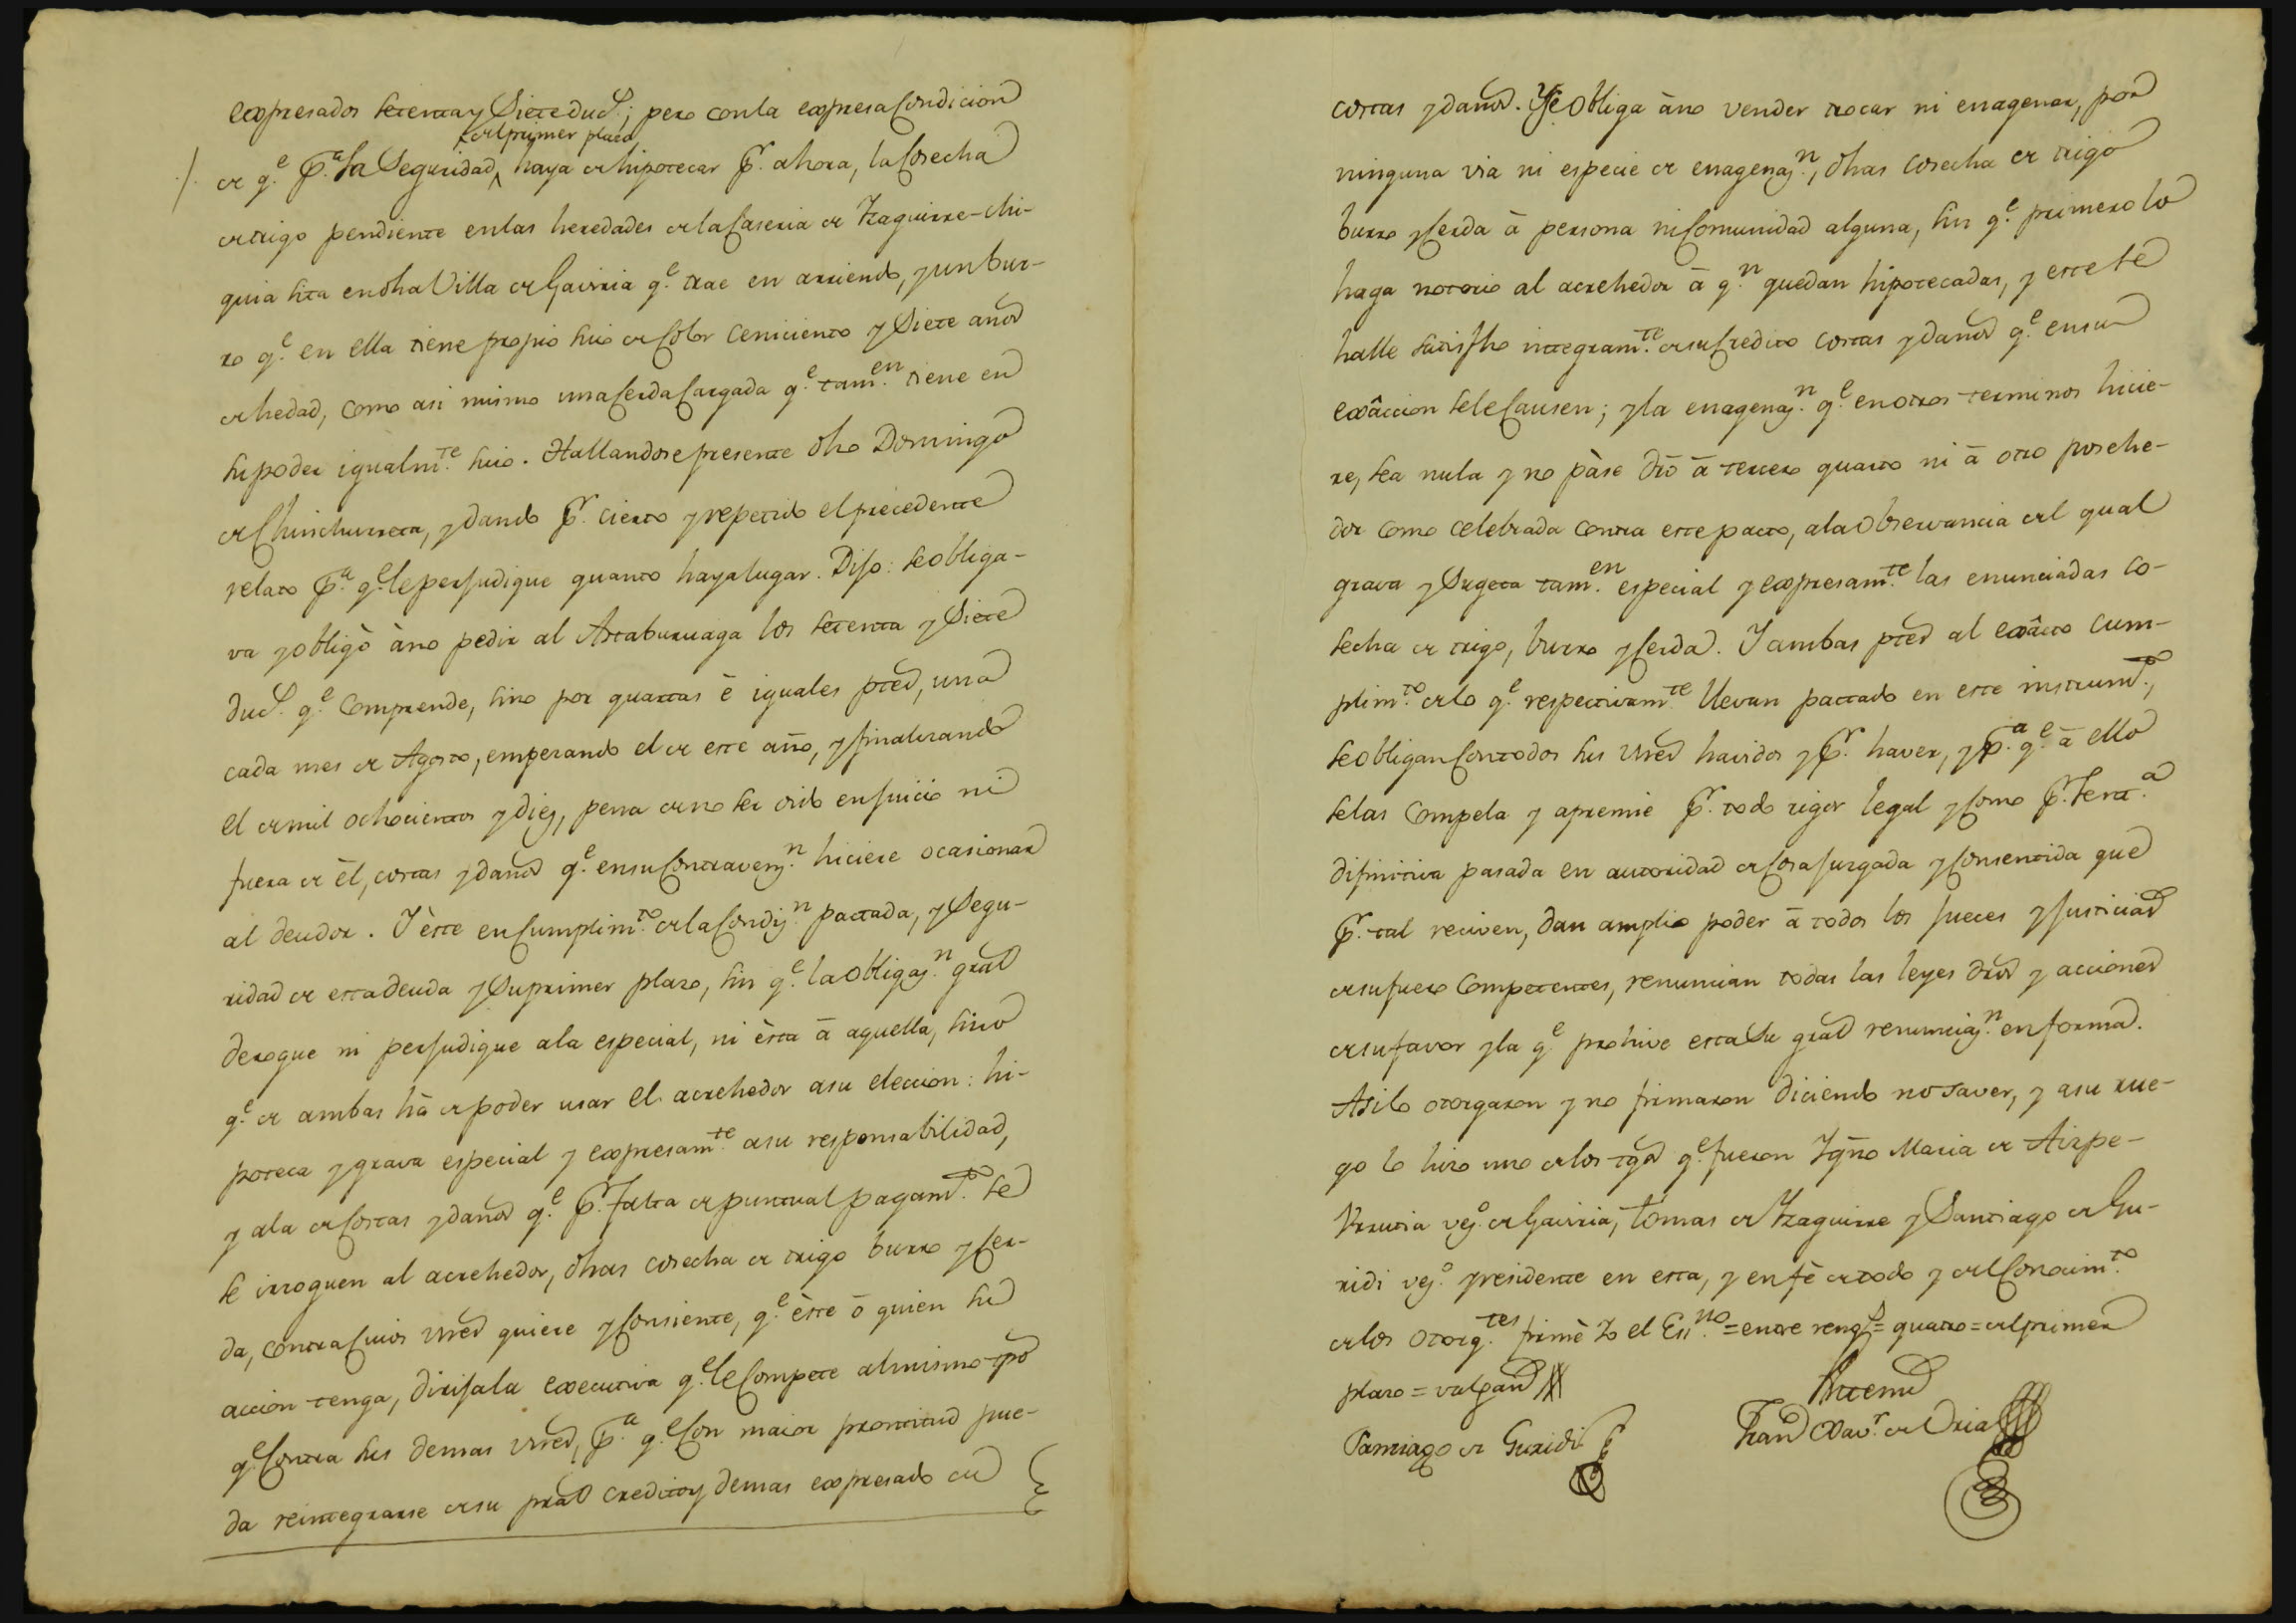 expresados setenta y Siete duc.s; pero con la expresa Condicion
del primer plazo
de q.e p.a la Seguridad, haya de hipotecar p.r ahora, la Cosecha
de trigo pendiente en las heredades de la Caseria de Yzaguirre-chi-
quia sita en dha Villa de Gaviria q.e trae en arriendo, y un bur-
ro q.e en ella tiene propio suio de Color ceniciento y Siete años
de hedad, como asi mismo una Cerda Cargada q.e tam.en tiene en
su poder igualm.te suio. Hallandose presente dho Domingo
de Chinchurreta, y dando p.r cierto y repetido el precedente
relato p.a q.e le perjudique quanto haya lugar. Dijo: se obliga-
va y obligò àno pedir al Astaburuaga los setenta y Siete
duc.s q.e Comprende, sino por quartas è iguales ptes, una
cada mes de Agosto, empezando el de este año, y finalizando
el de mil ochocientos y diez, pena de no ser oido en juicio ni
fuera de èl, costas y daños q.e en su Contravenz.n hiciere ocasionar
al deudor. Y èste en Cumplim.to de la Condiz.n pactada, y Segu-
ridad de esta deuda y Su primer plazo, sin q.e la obligaz.n gral
derogue ni perjudique ala especial, ni èsta à aquella, sino
q.e de ambas hà de poder usar el acrehedor asu eleccion: hi-
poteca y grava especial y expresam.te asu responsabilidad,
y ala de Costas y daños q.e p.r falta de puntual pagam.to se
le irroguen al acrehedor, dhas cosecha de trigo burro y Cer-
da, contra Cuios vnes quiere y Consiente, q.e èste ò quien su
accion tenga, dirija la executiva q.e le Compete al mismo tpo
q.e Contra sus demas vnes, p.a q.e Con maior prontitud pue-
da reintegrarse de su pral credito y demas expresado de
costas y daños. Y se obliga àno vender trocar ni enagenar, por
ninguna via ni especie de enagenaz.n, dhas cosecha de trigo
burro y Cerda à persona ni Comunidad alguna, sin q.e primero lo
haga notorio al acrehedor à q.n quedan hipotecadas, y este se
halle satisfho integram.te de su Credito costas y daños q.e en su
exâccion se le Causen; y la enagenaz.n q.e en otros terminos hicie-
re, sea nula y no pàse dro à tercero quarto ni à otro posehe-
dor como celebrada contra este pacto, ala observancia del qual
grava y Sugeta tam.en especial y expresam.te las enunciadas co-
secha de trigo, burro y Cerda. Y ambas ptes al exâcto cum-
plim.to de lo q.e respectivam.te llevan pactado en este instrum.to,
se obligan Con todos sus vnes havidos y p.r haver, y p.a q.e à ello
se las Compela y apremie p.r todo rigor legal y Como p.r Sent.a
difinitiva pasada en autoridad de Cosa juzgada y Consentida que
p.r tal reciven, dan amplio poder à todos los jueces y justicias
de su fuero Competentes, renuncian todas las leyes dros y acciones
de su favor y la q.e prohive esta Su gral renunciaz.n en forma.
Asi lo otorgaron y no firmaron diciendo no saver, y asu rue-
go lo hizo uno de los tgos q.e fueron Ygno Maria de Aizpe-
Urrutia vez.o de Gaviria, Tomas de Yzaguirre y Santiago de Gu-
ridi vez.o y residente en esta, y en fè de todo y del Conocim.to
de los otorg.tes firmè Yo el Ess.no = entre reng.s = quatro = del primer
plazo = valgan
Antemi
Santiago de Guridi
Fran.co Xav.r de Oria